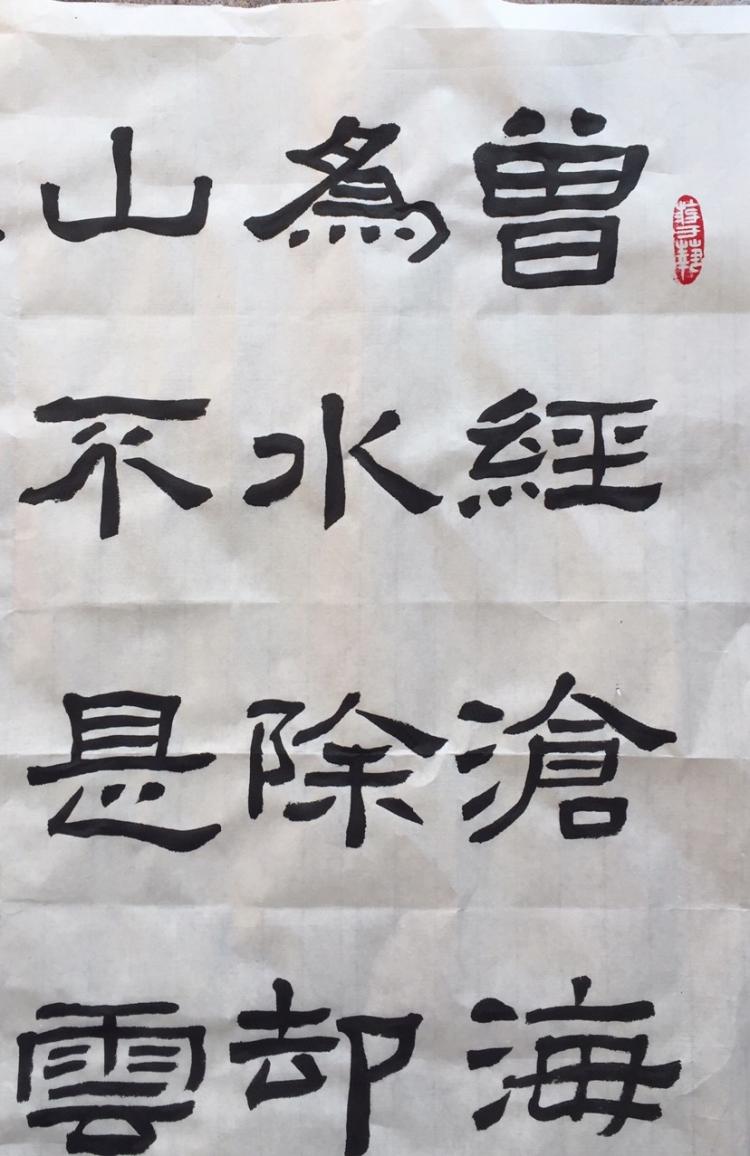 曾經滄海
爲水除却
山不是雲